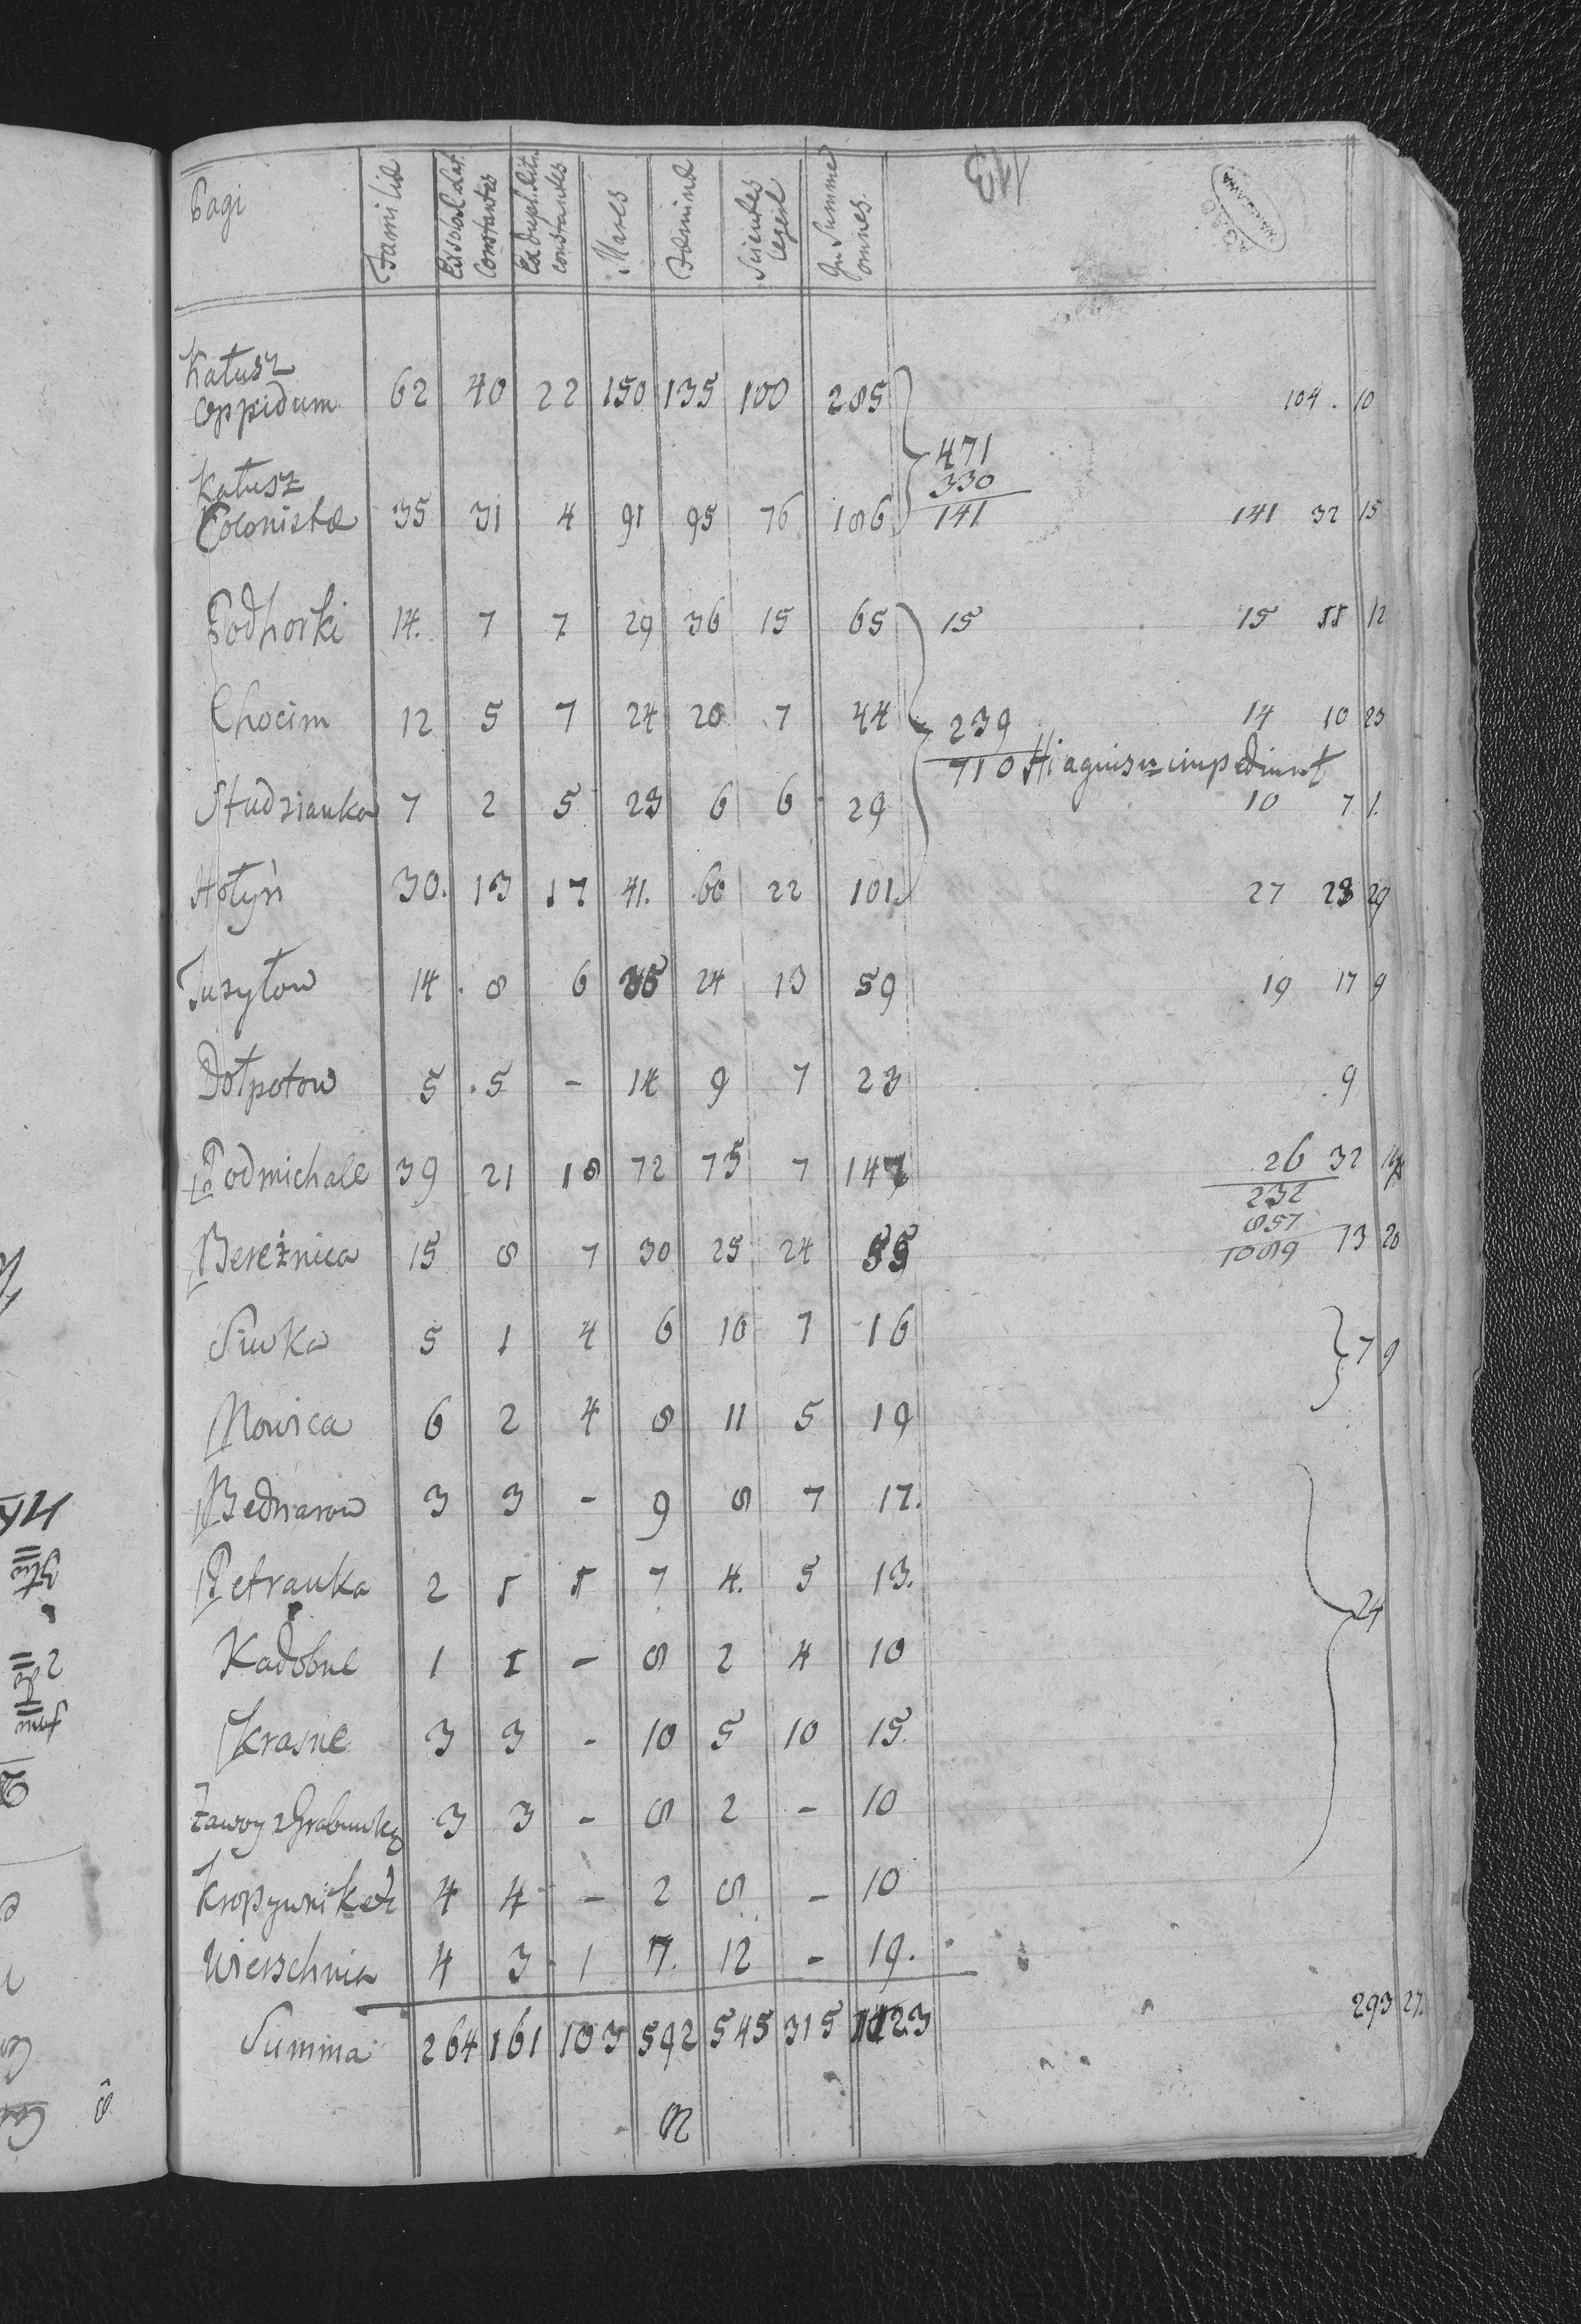 Pagi Familiæ Ex sol. lat. constantes Ex dupl. rit. constantes Mares Feminæ Scientes legere In Summa omnes. 113
Kałusz
Oppidum 62 40 22 150 135 100 285 104. 10
471
Kałusz 330
Colonistæ 35 31 4 91 95 76 186 141 141 32 15
Podhorki 14. 7 7 29 36 15 65 15 15 58 12
Chocim 12 5 7 24 20 7 44 239 14 10 23
710
Studzianka 7 2 5 23 6 6 29 10 7 1.
Hołyń 30. 13 17 41. 60 22 101. 27 28 29
Tużyłow 14 8 6 35 24 13 59 19 17 9
Dołpotow 5 5 - 14 9 7 23 9
Podmichale 39 21 18 72 75 7 147 26 32
232
857
Bereźnica 15 8 7 30 25 24 55 1089 13 20
Siwka 5 1 4 6 10 7 16 7 9
Nowica 6 2 4 8 11 5 19
Bednarow 3 3 - 9 8 7 17.
Petranka 2 1 1 7 4. 5 13. 24
Kadobne 1 1 - 8 2 4 10
Krasne 3 3 - 10 5 10 15.
Zawoy z Grabuwką 3 3 - 8 2 - 10
Kropywnik 4 4 - 2 8 - 10
Wierschnia 4 3 1 7. 12 - 19.
Summa 264 161 103 592 545 315 1123 293 27.